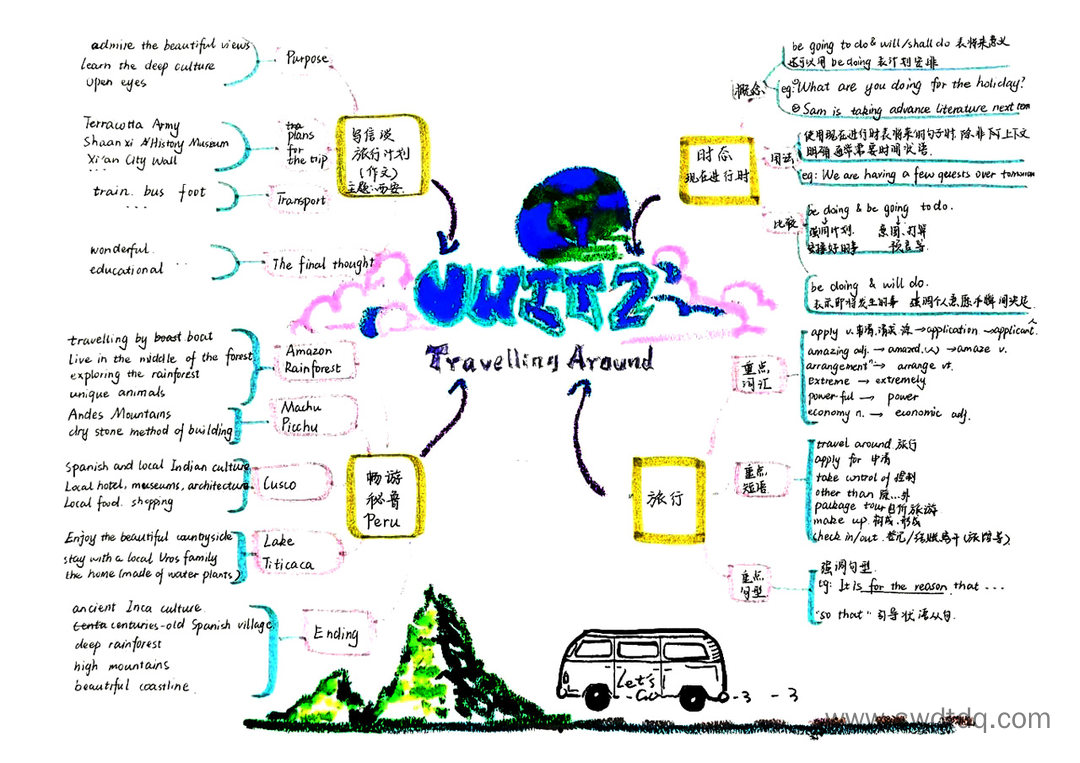 UNIT 2
Travelling Around
写信谈
旅行计划
(作文)
主题:西安
Purpose
admire the beautiful views
learn the deep culture
open eyes
plans
for
the trip
Terracotta Army
Shaanxi History Museum
Xi'an City Wall
Transport
train. bus foot
...
The final thought
wonderful.
educational ...
畅游
秘鲁
Peru
Amazon
Rainforest
travelling by boast boat
Live in the middle of the forest
exploring the rainforest
unique animals
Machu
Picchu
Andes Mountains
dry stone method of building
Cusco
Spanish and local Indian culture
Local hotel, museums, architecture
Local food. shopping
Lake
Titicaca
Enjoy the beautiful countryside
stay with a local Uros family
the home (made of water plants)
Ending
ancient Inca culture
centuries-old Spanish village
deep rainforest
high mountains
beautiful coastline.
时态
现在进行时
概念
be going to do & will/shall do 表将来意义
还可以用 be doing 表计划安排
eg: ①What are you doing for the holiday?
② Sam is taking advance literature next term
用法
使用现在进行时表将来的句子时 除非有上下文
明确 通常需要时间状语.
eg: We are having a few guests over tomorrow
比较
be doing & be going to do.
强调计划. 意图、打算
安排好的事 预言等.
be doing & will do.
表示即将发生的事 强调个人意愿
旅行
重点
词汇
apply v. 申请, →application →applicant.
amazing adj. → amazed. → amaze v.
arrangement n → arrange vt.
extreme → extremely
powerful → power
economy n. → economic adj.
重点
短语
travel around 旅行
apply for 申请
take control of 控制
other than 除...外
package tour 包价旅游
make up 构成, 形成
check in/out. 登记/结账离开(旅馆等)
重点
句型
强调句型.
eg: It is for the reason that ...
"so that" 引导状语从句.
Let's
Go
www.swdtdq.com